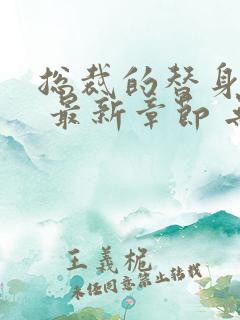 总裁的替身
最新章节
王義柅
未经同意禁止转载